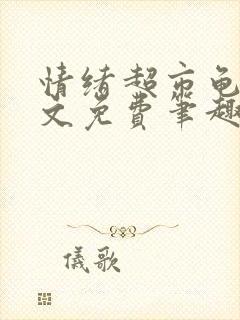 情绪超市龟
文免费笔趣
仪歌